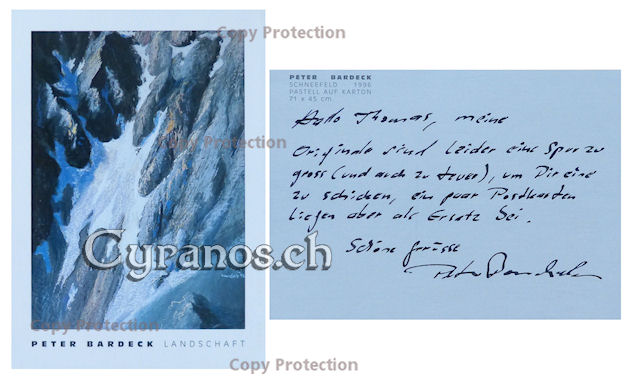 Copy Protection
PETER BARDECK
SCHNEEFELD 1996
PASTELL AUF KARTON
71 x 45 cm
Hallo Thomas, meine
Copy Protection
Originale sind leider eine Spur zu
gross (und auch zu teuer), um Dir eine
zu schicken, ein paar Postkarten
liegen aber als Ersatz bei.
Cyranos.ch
Schöne Grüsse
Peter Bardeck
Copy Protection
PETER BARDECK LANDSCHAFT
Copy Protection